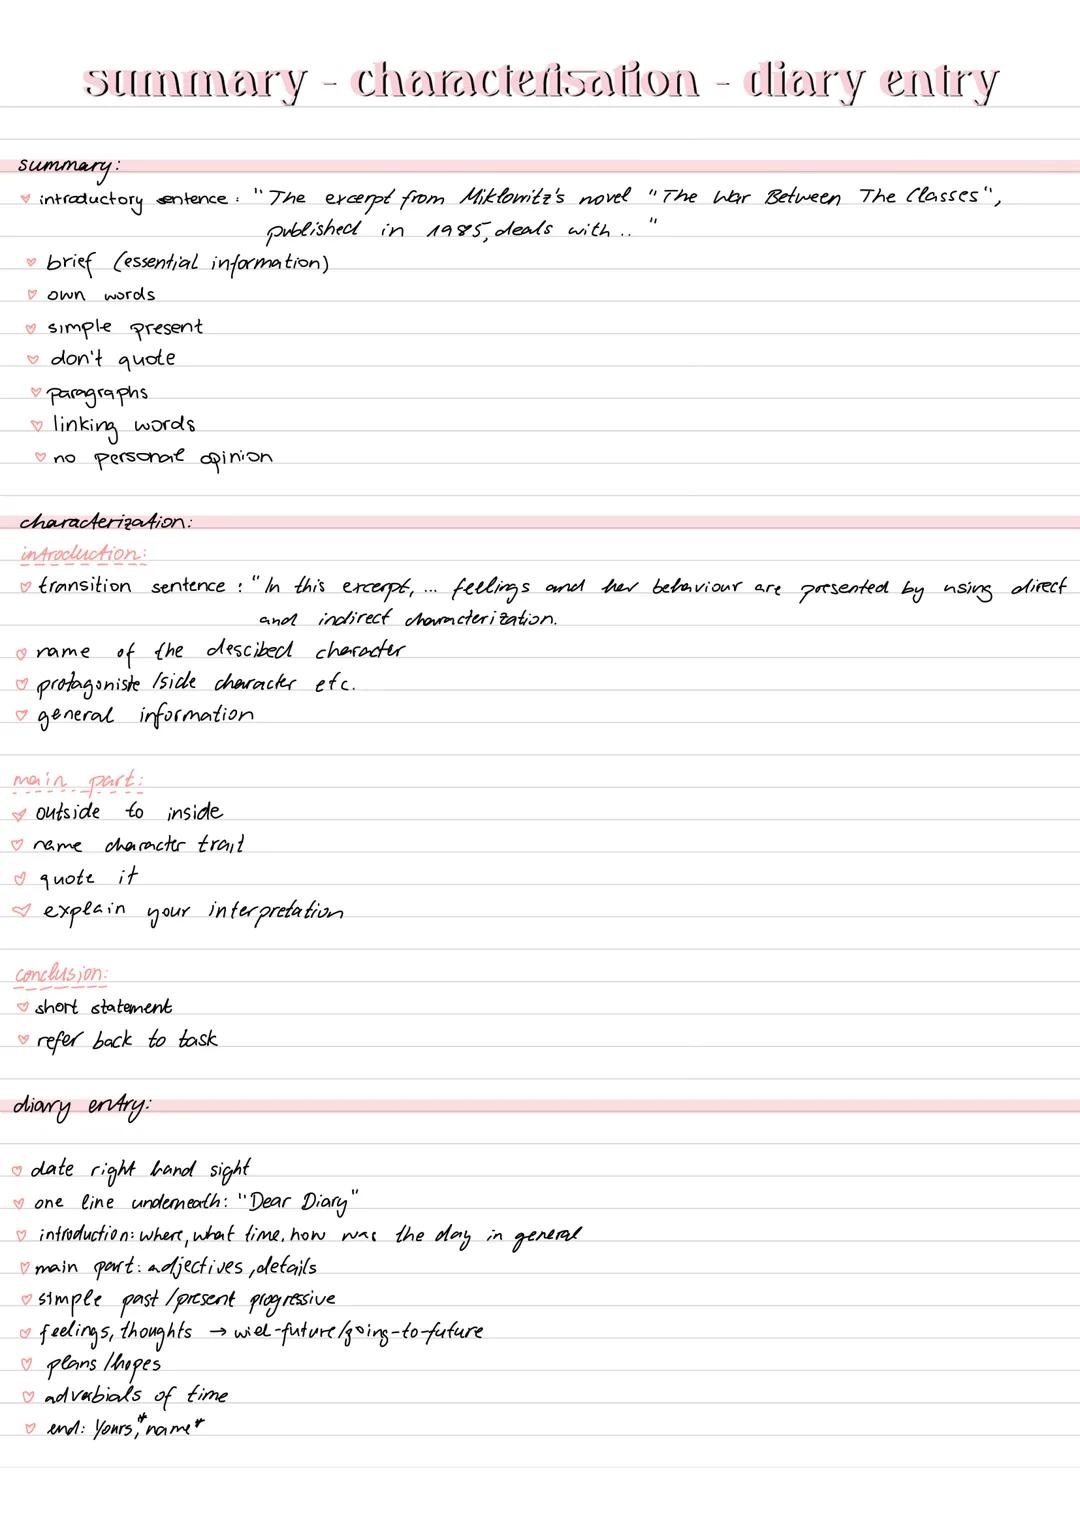 summary - characterisation - diary entry
summary:
introductory sentence: "The excerpt from Miklowitz's novel "The War Between The Classes",
published in 1985, deals with .. "
brief (essential information)
own words
simple present
don't quote
paragraphs
linking words
no personal opinion
characterization:
introduction:
transition sentence : "In this excerpt, ... feelings and her behaviour are presented by using direct
and indirect characterization.
name of the descibed character
protagoniste /side character etc.
general information
main part:
outside to inside
name character trait
quote it
explain your interpretation
conclusion:
short statement
refer back to task
diary entry:
date right hand sight
one line underneath: "Dear Diary"
introduction: where, what time, how was the day in general
main part: adjectives, details
simple past /present progressive
feelings, thoughts → will-future/going-to-future
plans /hopes
adverbials of time
end: Yours, *name*